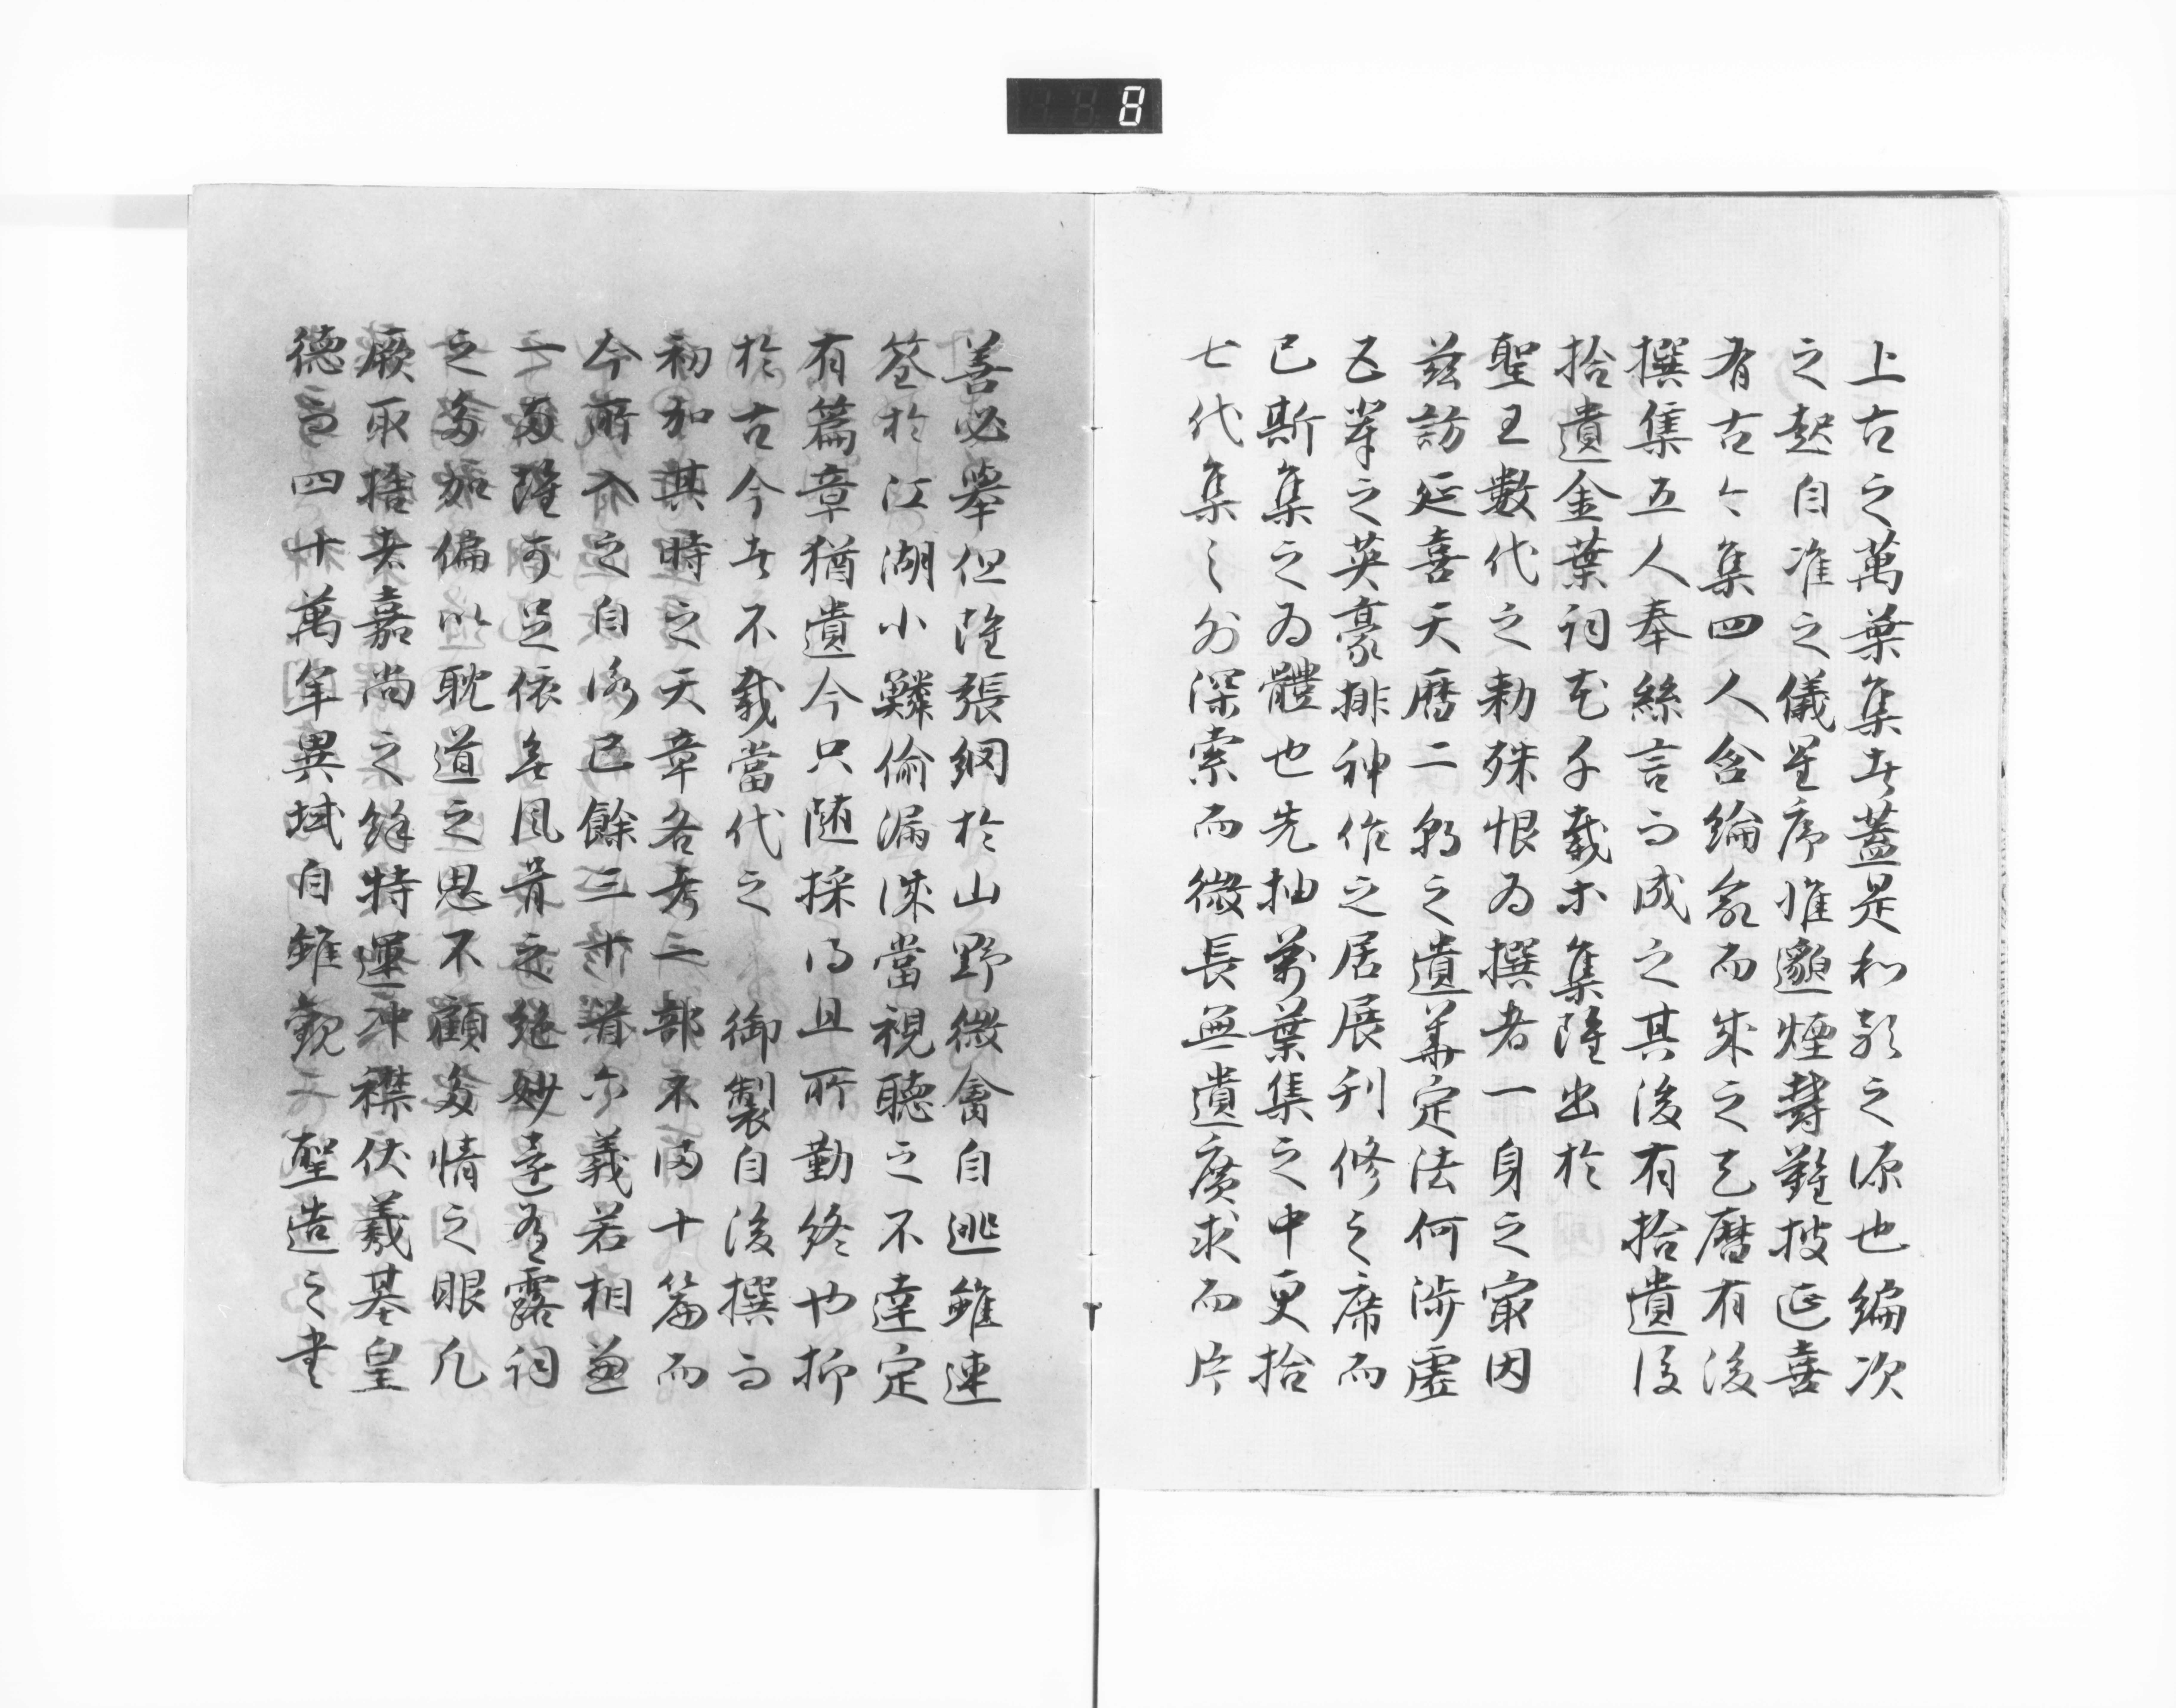 8
上古之萬葉集者蓋是和歌之源也編次
之起自准之儀星序惟邈煙鬱難披延喜
有古今集四人含綸命而成之天曆有後
撰集五人奉絲言而成之其後有拾遺後
拾遺金葉詞花千載等集雖出於
聖王數代之勅殊恨為撰者一身之最因
茲訪延喜天曆二朝之遺美定法何渉虛
五輩之英豪排神仙之居展刊修之席而
已斯集之為體也先抽萬葉集之中更拾
七代集之外深索而微長無遺廣求而片
善必舉但雖張網於山野微禽自逃雖連
筌於江湖小鱗偷漏誠當視聽之不達定
有篇章猶遺今只随採得且所勤終也抑
於古今者不載當代之 御製自後撰而
初加其時之天章各考一部不滿十篇而
今所入之自詠已餘三十首六義若相兼
一兩雖可足依無風骨之絕妙還有露詞
之多加偏以耽道之思不顧多情之眼凡
厥取捨者嘉尚之餘特運沖襟伏羲基皇
德而四十萬年異域自雖觀 聖造之書